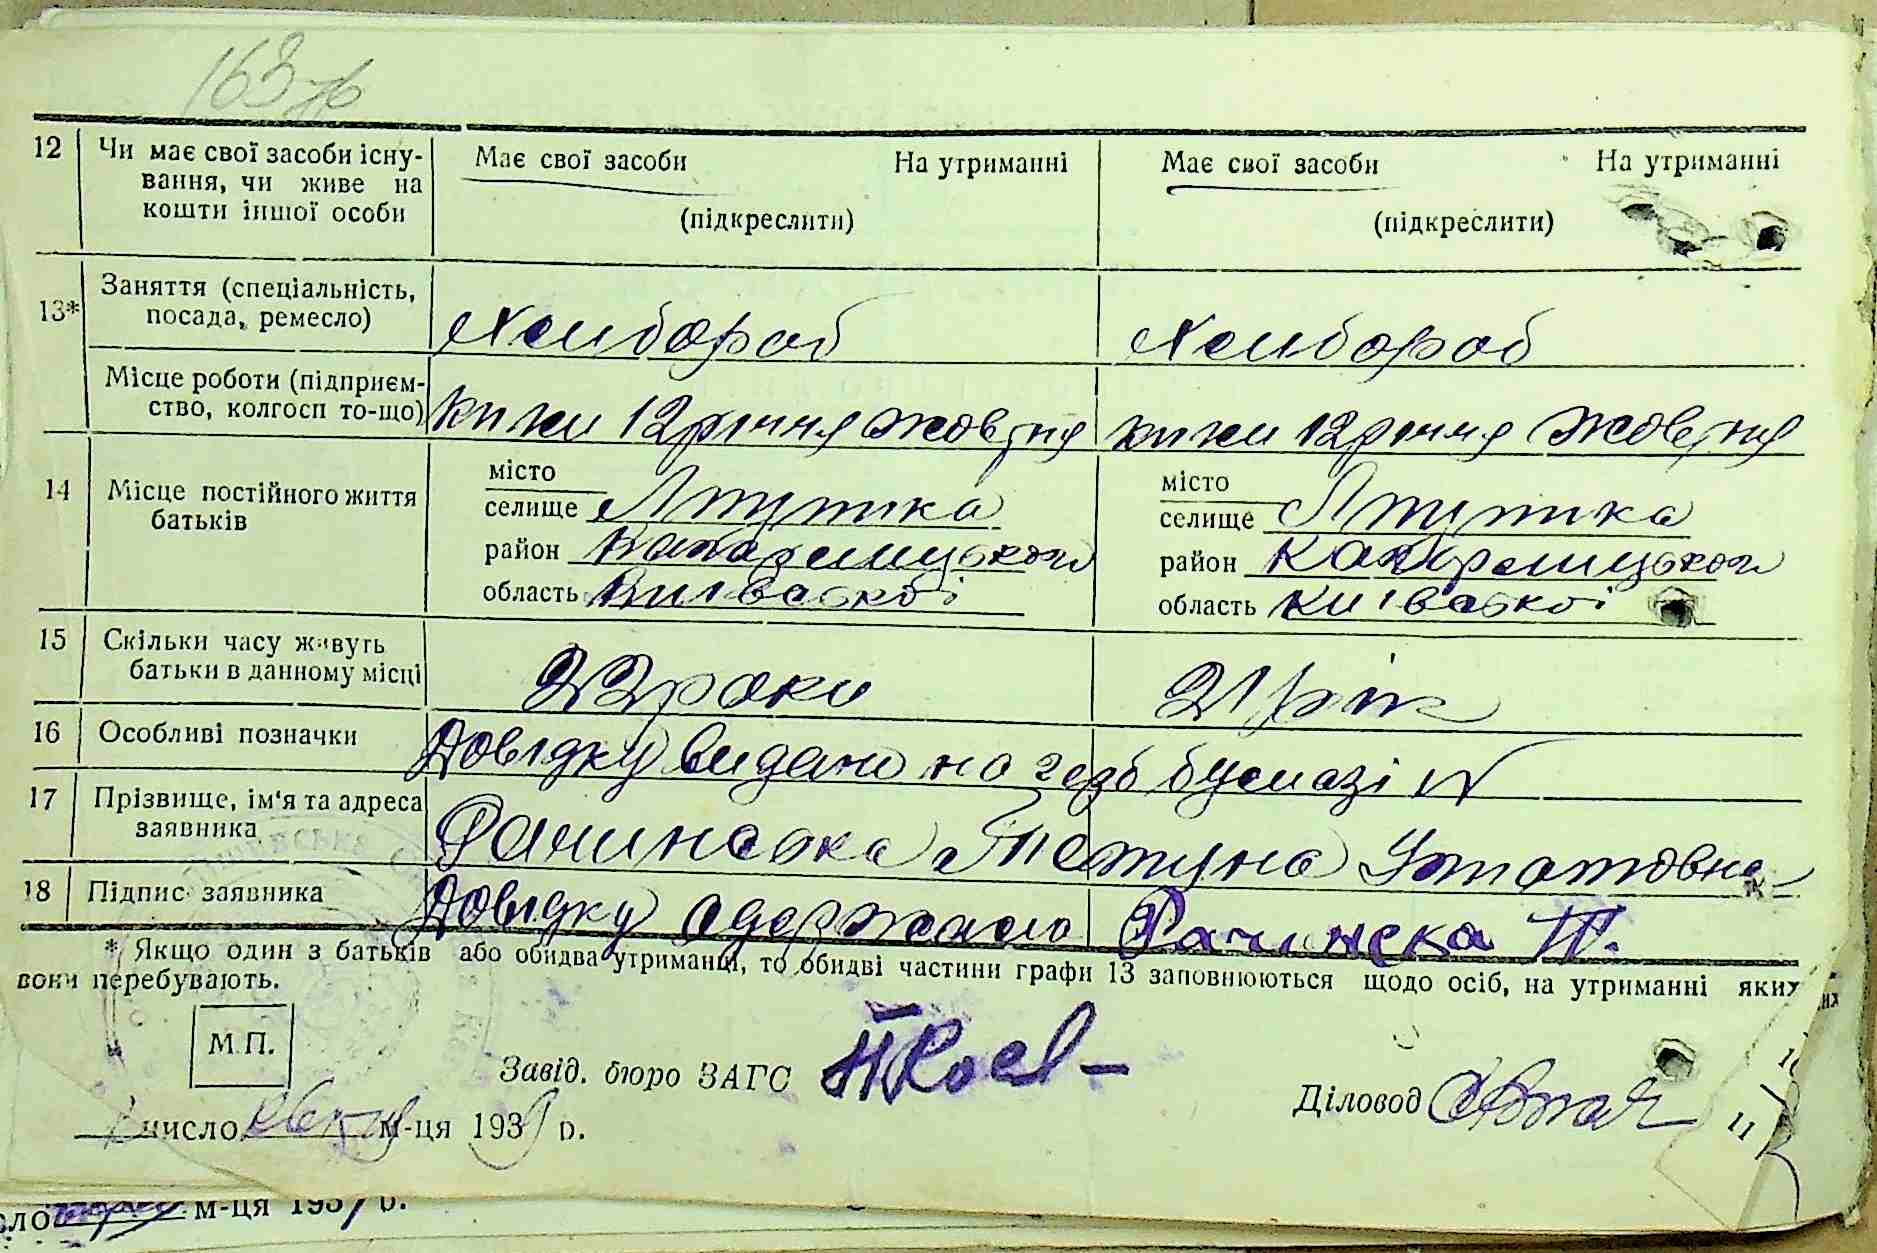 163
12 Чи має свої засоби існу- Має свої засоби На утриманні Має свої засоби На утриманні
вання, чи живе на
кошти іншої особи (підкреслити) (підкреслити)
13* Заняття (спеціальність,
посада, ремесло) Хлибороб Хлибороб
Місце роботи (підприєм-
ство, колгосп то-що) 12 річчя Жовтня 12 річчя Жовтня
14 Місце постійного життя місто місто
батьків селище селище
район район
область Київської область Київської
15 Скільки часу живуть
батьки в данному місці 22 роки 21 рік
16 Особливі позначки Довідку видано на бумазі N
17 Прізвище, ім'я та адреса
заявника Рачинська Тетяна
18 Підпис заявника Довідку одержано Рачинска Т.
* Якщо один з батьків або обидва утриманці, то обидві частини графи 13 заповнюються щодо осіб, на утриманні яких
вони перебувають.
М.П.
Завід. бюро ЗАГС
Діловод
число м-ця 1939 р.
11
м-ця 193 р.